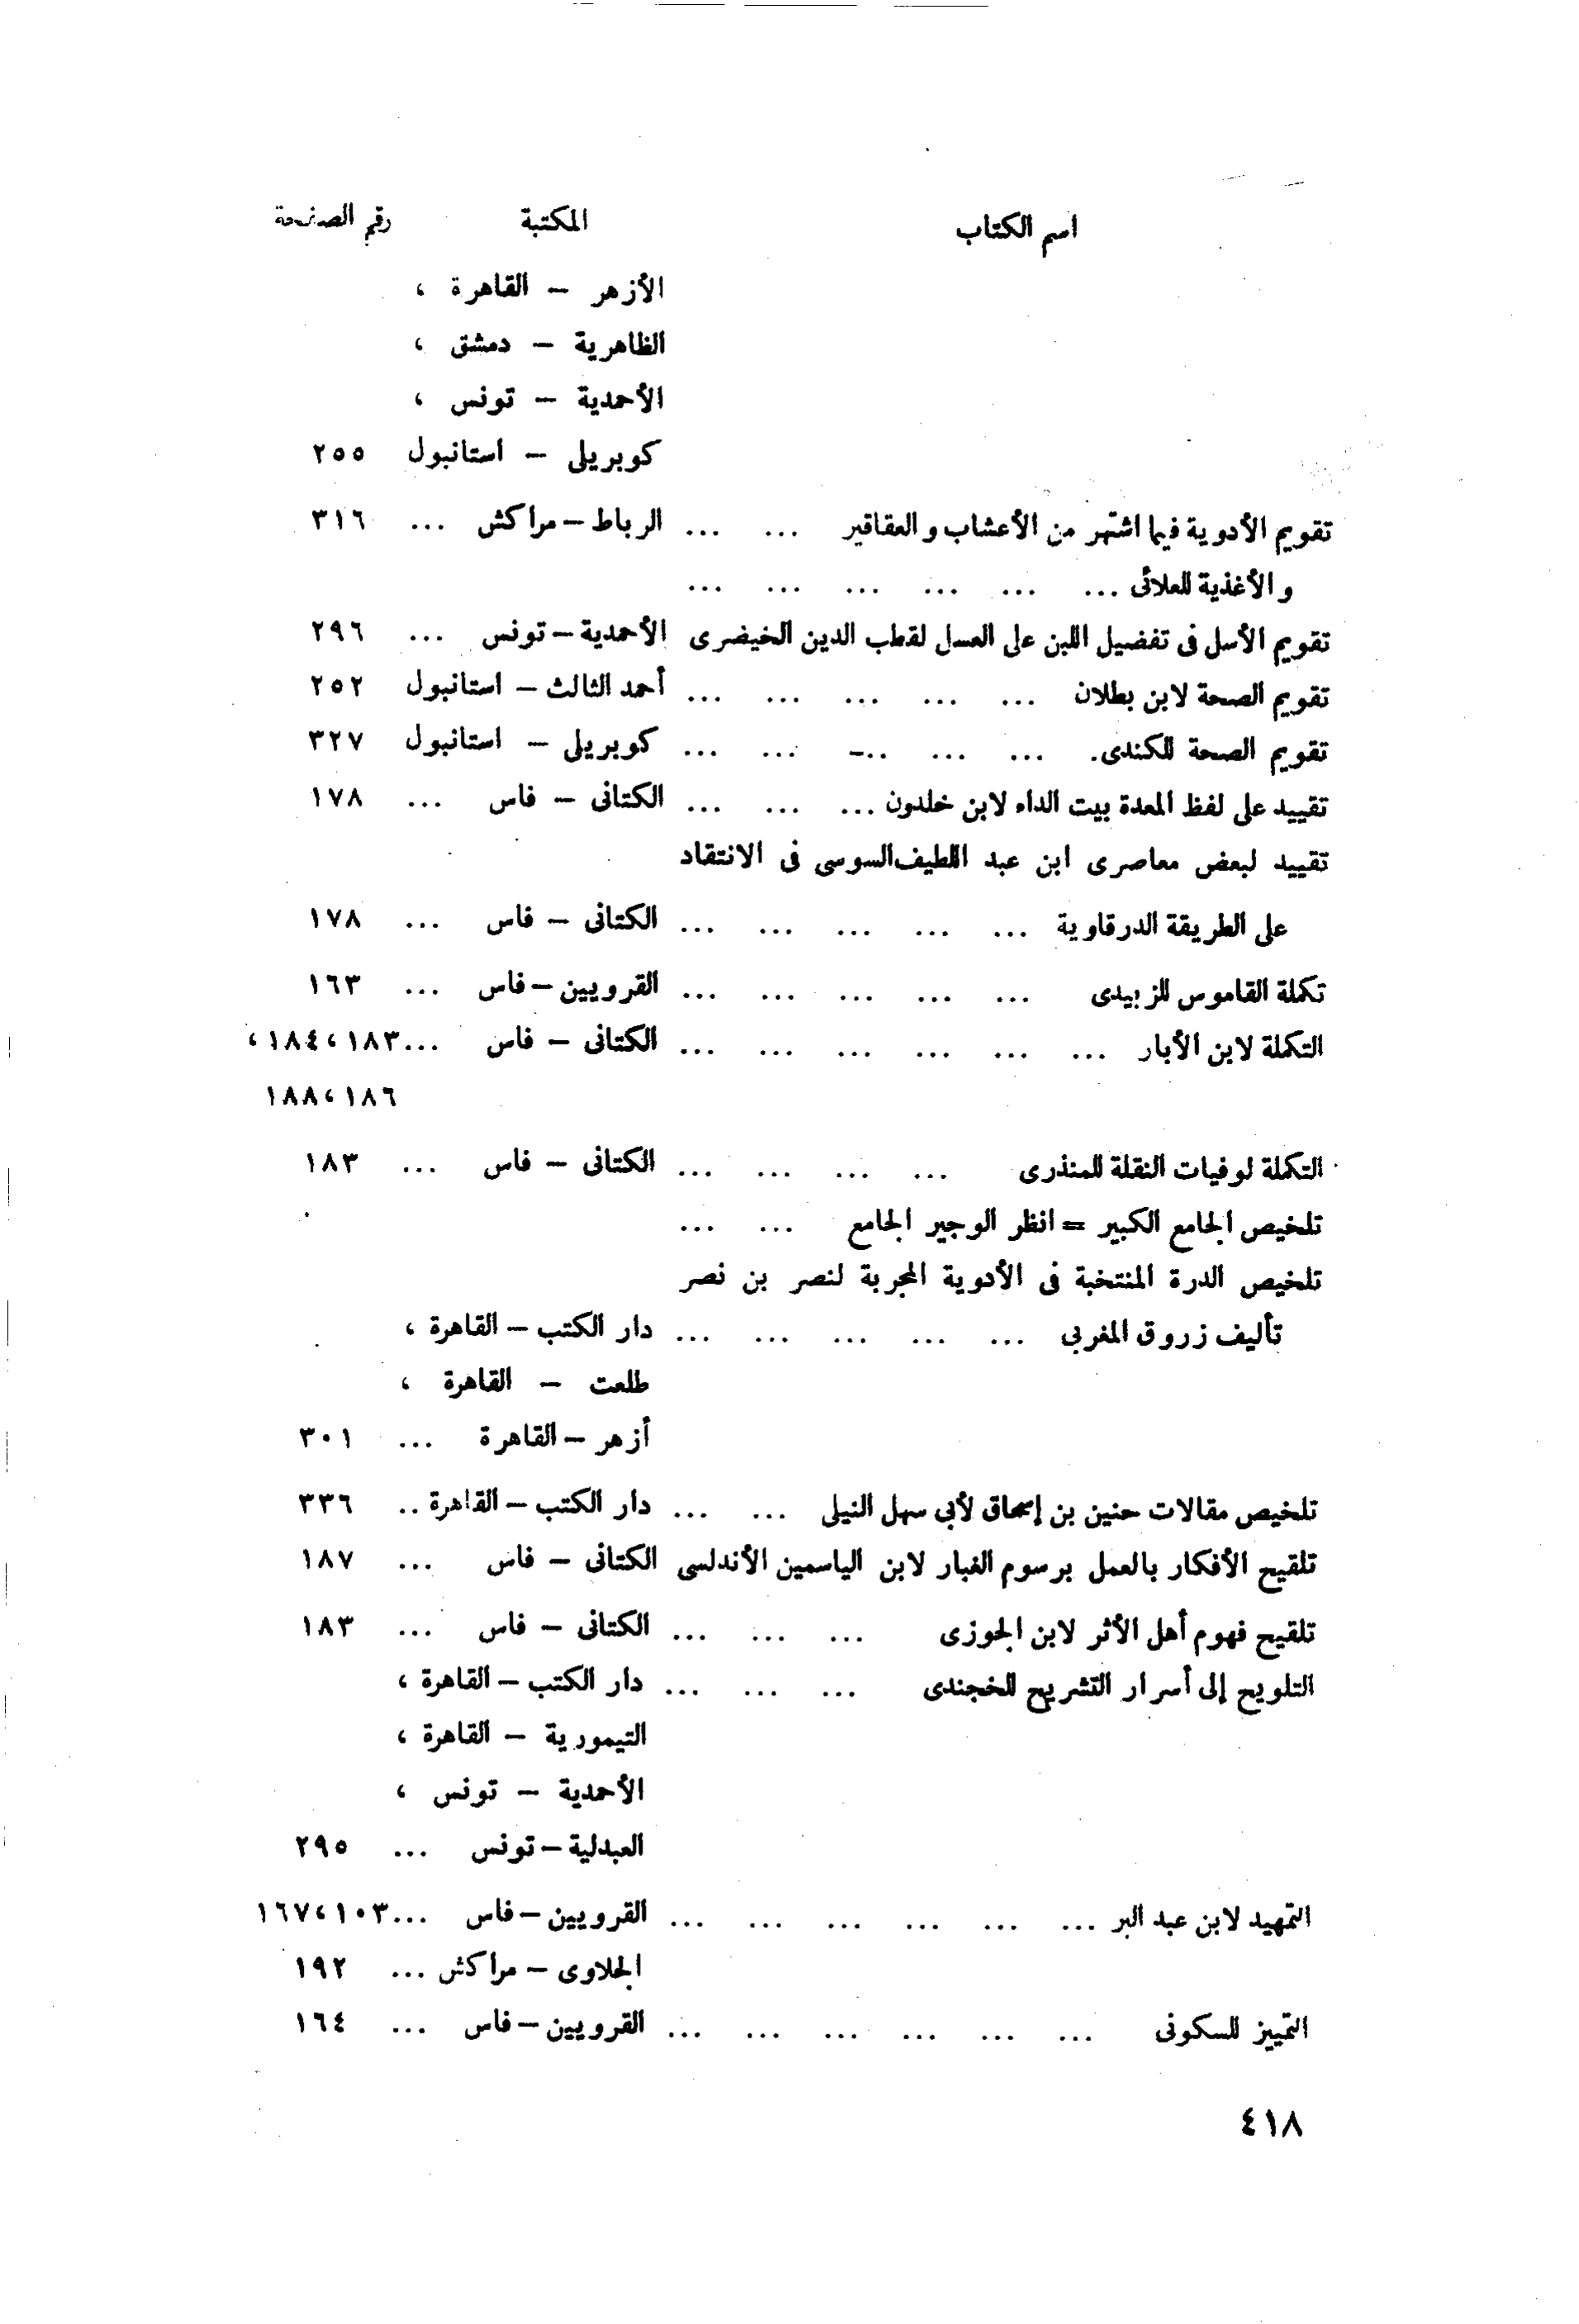 اسم الكتاب المكتبة رقم الصفحة
الأزهر – القاهرة ،
الظاهرية – دمشق ،
الأحمدية – تونس ،
كوبريلى – استانبول ٢٥٥
تقويم الأدوية فيما اشتهر من الأعشاب والعقاقير ... ... الرباط – مراكش ... ٣١٦
والأغذية للعلائى ... ... ... ... ... ...
تقويم الأسل فى تفضيل اللبن على العسل لقطب الدين الخيضرى الأحمدية – تونس ... ٢٩٦
تقويم الصحة لابن بطلان ... ... ... ... ... أحمد الثالث – استانبول ٢٥٢
تقويم الصحة للكندى. ... ... ..– ... ... كوبريلى – استانبول ٣٢٧
تقييد على لفظ المعدة بيت الداء لابن خلدون ... ... ... الكتانى – فاس ... ١٧٨
تقييد لبعض معاصرى ابن عبد اللطيف السوسى فى الانتقاد
على الطريقة الدرقاوية ... ... ... ... ... الكتانى – فاس ... ١٧٨
تكملة القاموس للزبيدى ... ... ... ... ... القرويين – فاس ... ١٦٣
التكملة لابن الأبار ... ... ... ... ... ... الكتانى – فاس ... ١٨٣ ، ١٨٤ ،
١٨٦ ، ١٨٨
التكملة لوفيات النقلة للمنذرى ... ... ... ... الكتانى – فاس ... ١٨٣
تلخيص الجامع الكبير = انظر الوجيز الجامع ... ...
تلخيص الدرة المنتخبة فى الأدوية المجربة لنصر بن نصر
تأليف زروق المغربى ... ... ... ... ... دار الكتب – القاهرة ،
طلعت – القاهرة ،
أزهر – القاهرة ... ٣٠١
تلخيص مقالات حنين بن إسحاق لأبى سهل النيلى ... ... دار الكتب – القاهرة .. ٣٣٦
تلقيح الأفكار بالعمل برسوم الغبار لابن الياسمين الأندلسى الكتانى – فاس ... ١٨٧
تلقيح فهوم أهل الأثر لابن الجوزى ... ... ... الكتانى – فاس ... ١٨٣
التلويح إلى أسرار التشريح للخجندى ... ... ... دار الكتب – القاهرة ،
التيمورية – القاهرة ،
الأحمدية – تونس ،
العبدلية – تونس ... ٢٩٥
التمهيد لابن عبد البر ... ... ... ... ... ... القرويين – فاس ... ١٠٣ ، ١٦٧
الجلاوى – مراكش ... ١٩٢
التمييز للسكونى ... ... ... ... ... ... القرويين – فاس ... ١٦٤
٤١٨